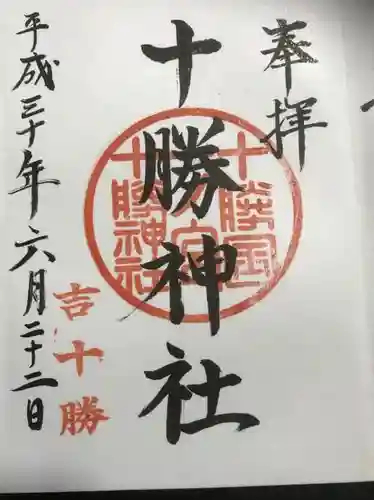 奉拝
十勝神社
十勝国
一宮
十勝神社
平成三十年六月二十二日
吉十勝